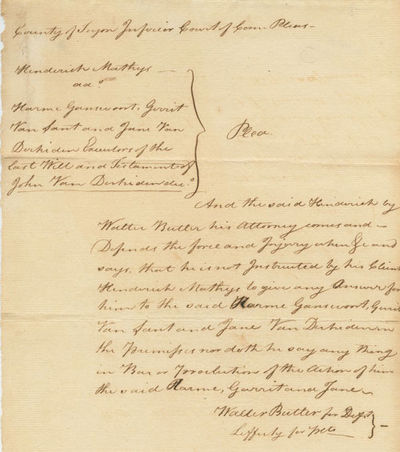 County of Tryon Inferior Court of Com Pleas
Hendrick Mathys
ads
Harme Gansevoort, Gerrit
Van Sant and Jane Van
Derheiden Executors of the
last Will and Testament of
John Van Derheiden dec.d
Plea
And the said Hendrick by
Walter Butler his Attorney comes and
Defends the force and Injury when &c and
says that he is not Instructed by his Client
Hendrick Mathys to give any Answer for
him to the said Harme Gansevoort, Gerrit
Van Sant and Jane Van Derheiden in
the Premises nor doth he say any thing
in Bar or Preclution of the Action of him
the said Harme, Garrit and Jane
Walter Butler for Deft
Lefferty for